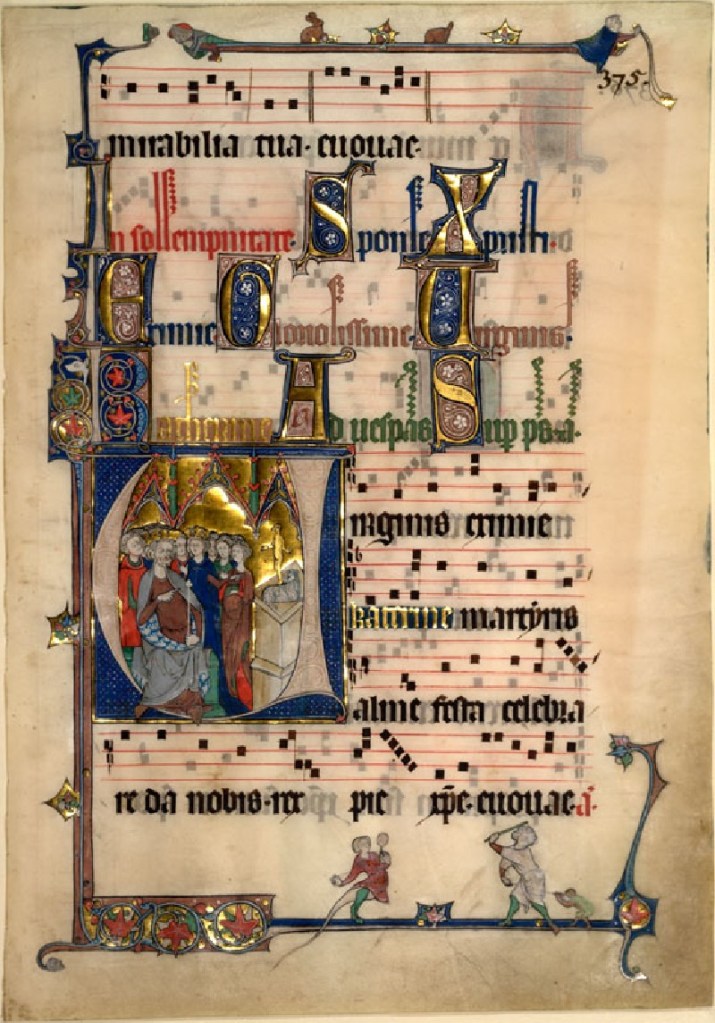 375.
mirabilia tua. euouae.
In sollempnitate. Sponse Xpisti.
Eximie Gloriosissime Uirginis.
Katherine Ad uespas Sup ps. a.
Uirginis eximie
katerine martyris
alme festa celebra
re da nobis. rex pie xpe. euouae. a